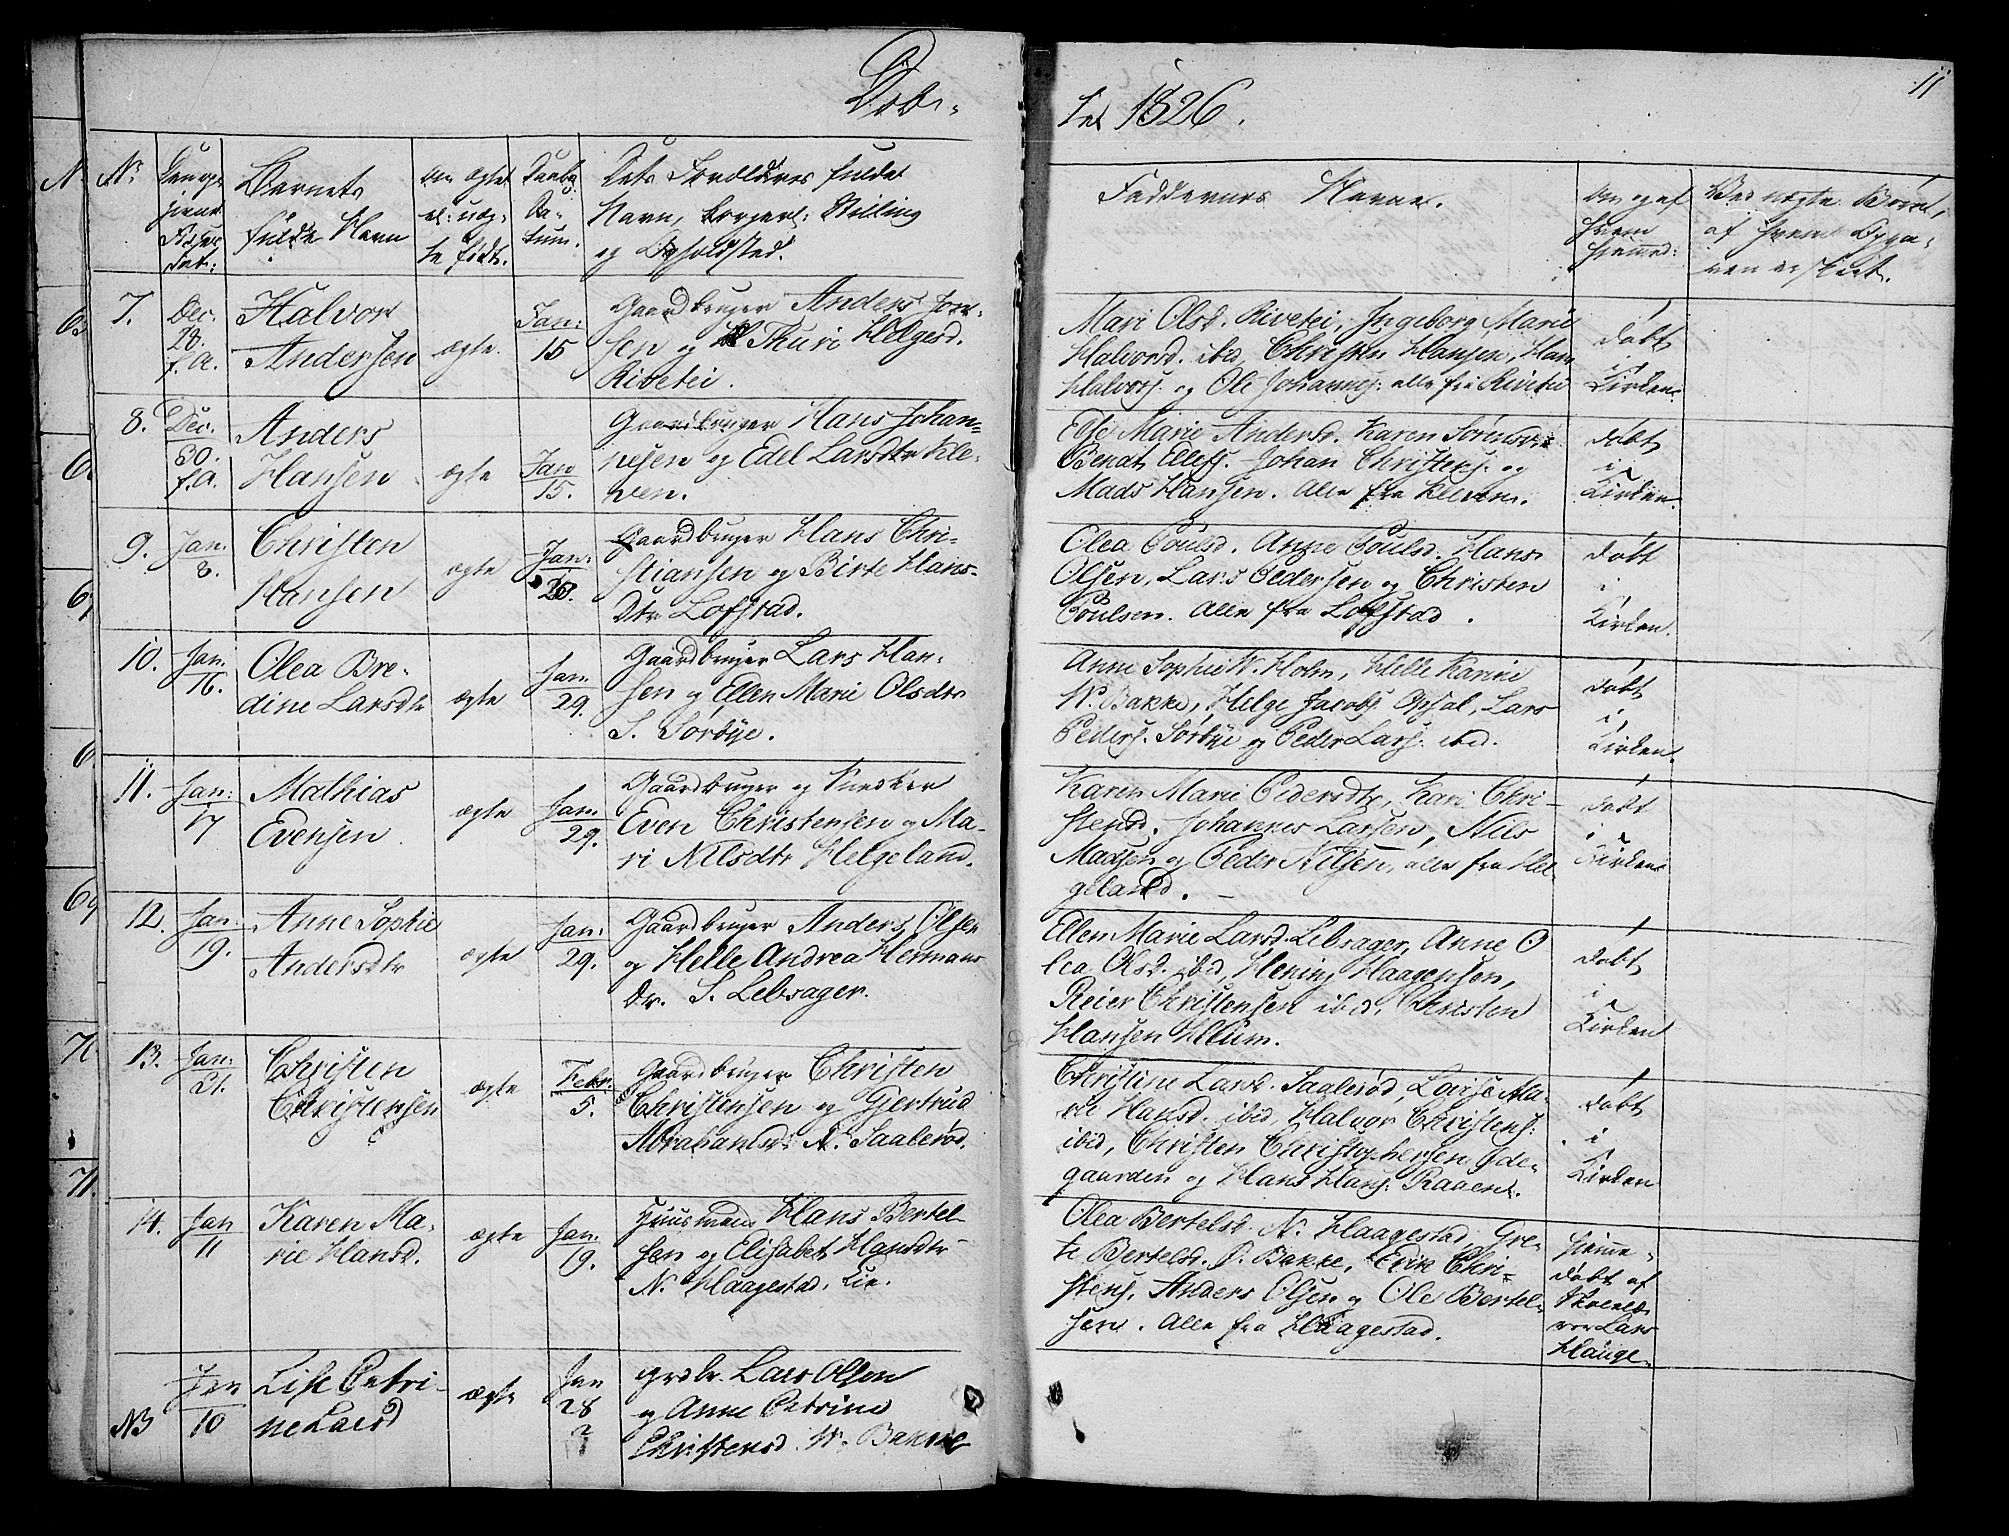 Døb-
te 1826.
11
No
Barnets
fulde Navn
om ægte
el: uæg-
te født.
Daabs
Da-
tum.
Dets Forældres fulde
Navn, borgerl: Stilling
og Opholdsted.
Faddernes Navne.
7.
Dec.
28.
f. A.
Halvor
Andersen
ægte.
Jan:
15
Gaardbruger Anders Jon-
sen og Thuri Helgesd.
Rivetei.
Mari Olsd. Rivetei, Ingeborg Marie
Halvorsd. ibid, Christen Hansen, Hans
Halvors. og Ole Johanns: alle fra Rivetei
døbt
i
Kirken.
8.
Dec.
30.
f. A.
Anders
Hansen
ægte
Jan
15.
Gaardbruger Hans Johan-
nesen og Edel Larsdtr Kle-
ven.
Else Marie Andersd. Karen Sørensd.
Benat Ellefs. Johan Christens: og
Mads Hansen. Alle fra Kleven.
døbt
i
Kirken.
9.
Jan.
8.
Christen
Hansen
ægte
Jan:
Gaardbruger Hans Chri-
stiansen og Birte Hans-
Dtr. Lofstad.
Olea Poulsd. Anne Poulsd. Hans
Olsen, Lars Pedersen og Christen
Poulsen. Alle fra Lofstad.
døbt
i
Kirken.
10.
Jan.
16.
Olea Bre-
dine Larsdtr
ægte
Jan.
29.
Gaardbruger Lars Han-
sen og Ellen Marie Olsdtr
S. Sørbye.
Anne Sophie N. Holm, Helle Karine
N. Bakke, Helge Jacobs. Opsal, Lars
Peders. Sørbye og Peder Lars. ibid.
døbt
i
Kirken.
11.
Jan:
17
Mathias
Evensen
ægte
Jan.
29.
Gaardbruger og Snedker
Even Christensen og Ma-
ri Nilsdtr Helgeland.
Karen Marie Pedersdtr, Kari Chri-
stensd. Johannes Larsen, Nils
Madsen og Peder Nilsen, alle fra Hel
geland.
døbt
i
Kirken
12.
Jan:
19.
Anne Sophie
Andersdtr
ægte
Jan:
29.
Gaardbruger Anders Olsen
og Helle Andrea Hermans
dr. S. Lebsager.
Ellen Marie Larsd. Lebsager, Anne O
lea Olsd. ibid, Hening Haagensen,
Reier Christensen ibid, Christen
Hansen Kleum.
døbt
i
Kirken
13.
Jan:
21.
Christen
Christensen
ægte
Febr.
5.
Gaardbruger Christen
Christensen og Gjertrud
Abrahamsd: N. Saalerød.
Christine Larsd. Saalerød, Lovise Ma-
rie Hansd. ibid, Halvor Christens:
ibid, Christen Christophersen Øde-
gaarden og Hans Hans: Raaen.
døbt
i
Kirken
14.
Jan
11
Karen Ma-
rie Hansd.
ægte
Jan.
19.
Huusmand Hans Bertel-
sen og Elisabet Hansdtr
N. Haagestad, Lie.
Olea Bertelsd. N. Haagestad, Gre-
te Bertelsd. Ø. Bakke, Erik Chri-
stens, Anders Olsen og Ole Bertel-
sen. Alle fra Haagestad.
hjemme-
døbt af
Lars
Hauge.
NB
Jan
10
Lise Petri-
ne Larsd
ægte
Jan
28
?
grdbr. Lars Olsen
og Anne Petrine
Christensd. N. Bakke